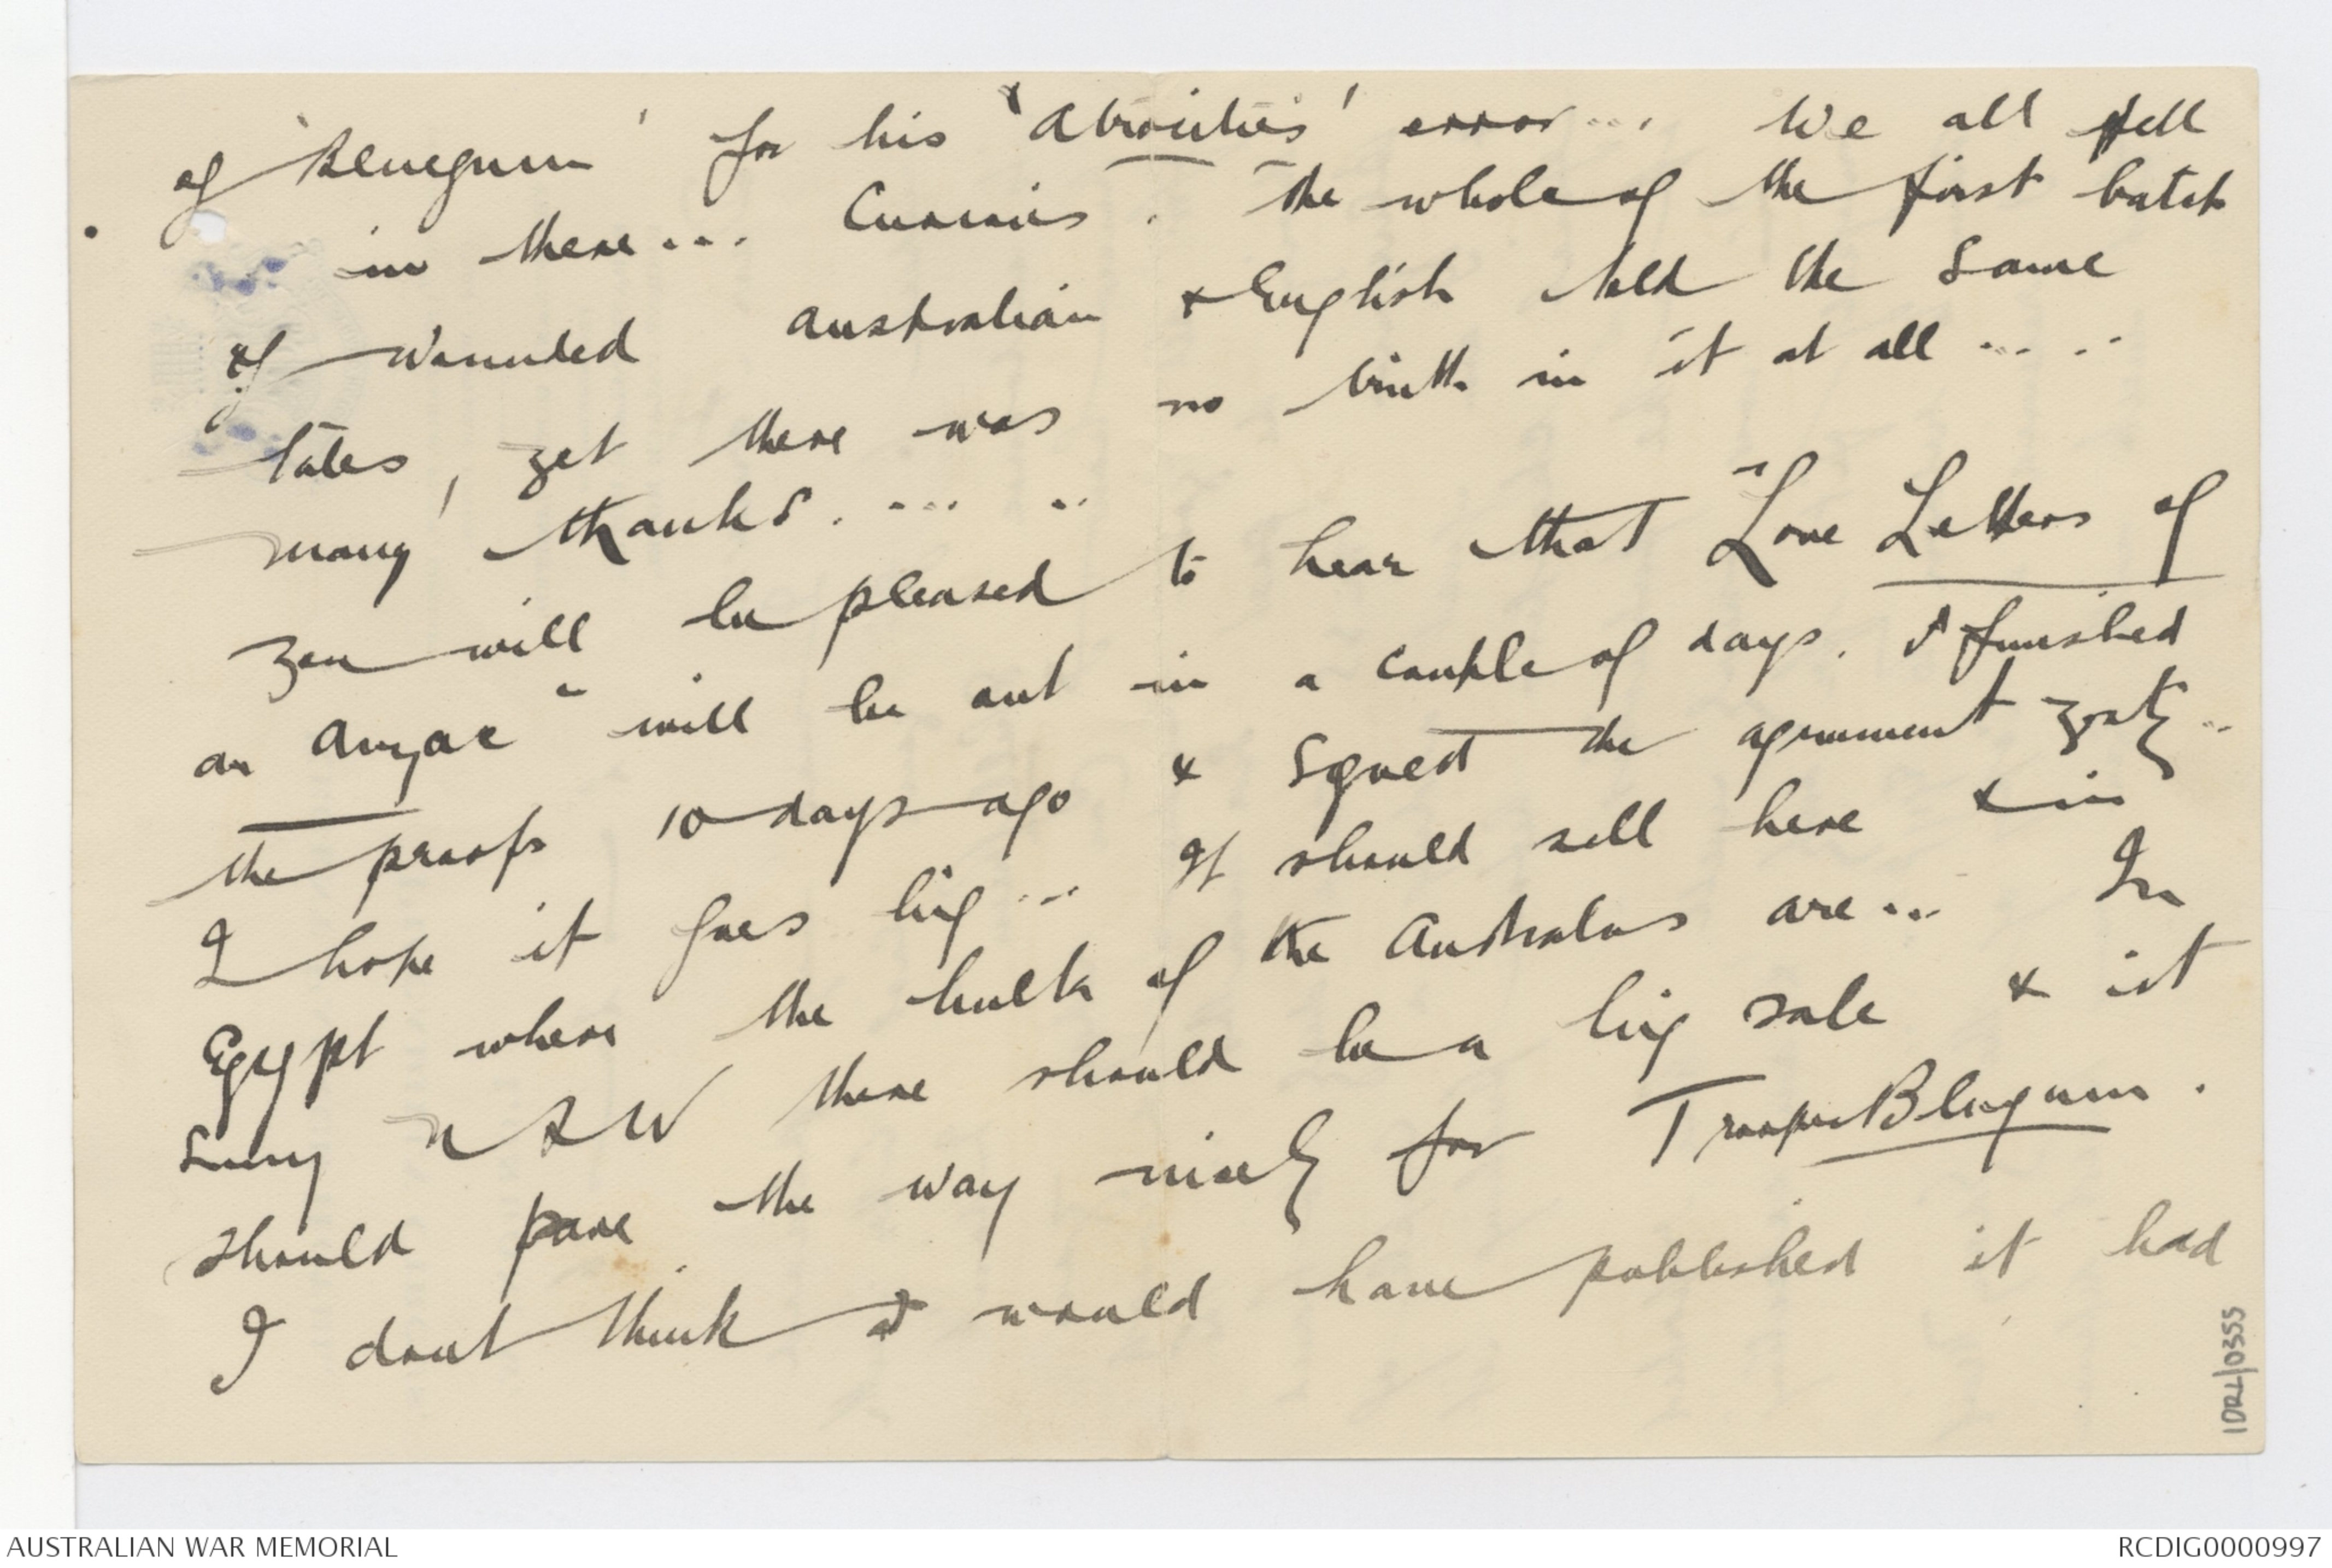 of 'Bluegum' for his 'Atrocities' error... We all fell
in there... Curious. The whole of the first batch
of wounded Australian & English told the same
tales, yet there was no truth in it at all.....
many thanks. ... ..
You will be pleased to hear that "Love Letters of
an Anzac" will be out in a couple of days. I finished
the proofs 10 days ago & signed the agreement yesty..
I hope it goes big... It should sell here & in
Egypt where the bulk of the Australns are... In
Sunny NSW there should be a big sale & ist
should pave the way nicely for Trooper Bluegum.
I dont think I would have published it had
1DRL/0355
AUSTRALIAN WAR MEMORIAL
RCDIG0000997